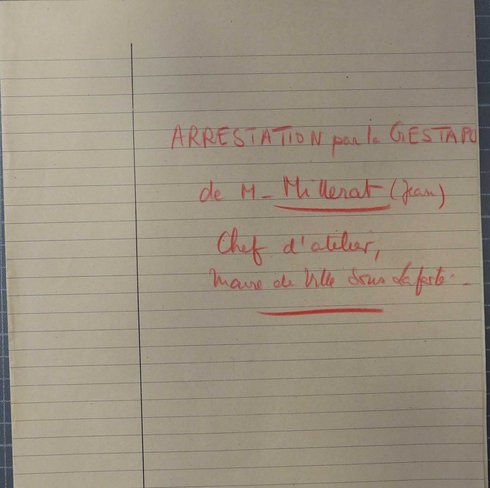 ARRESTATION par la GESTAPO
de M- Millerat (Jean)
Chef d'atelier,
Maire de Ville sous Laferté.-